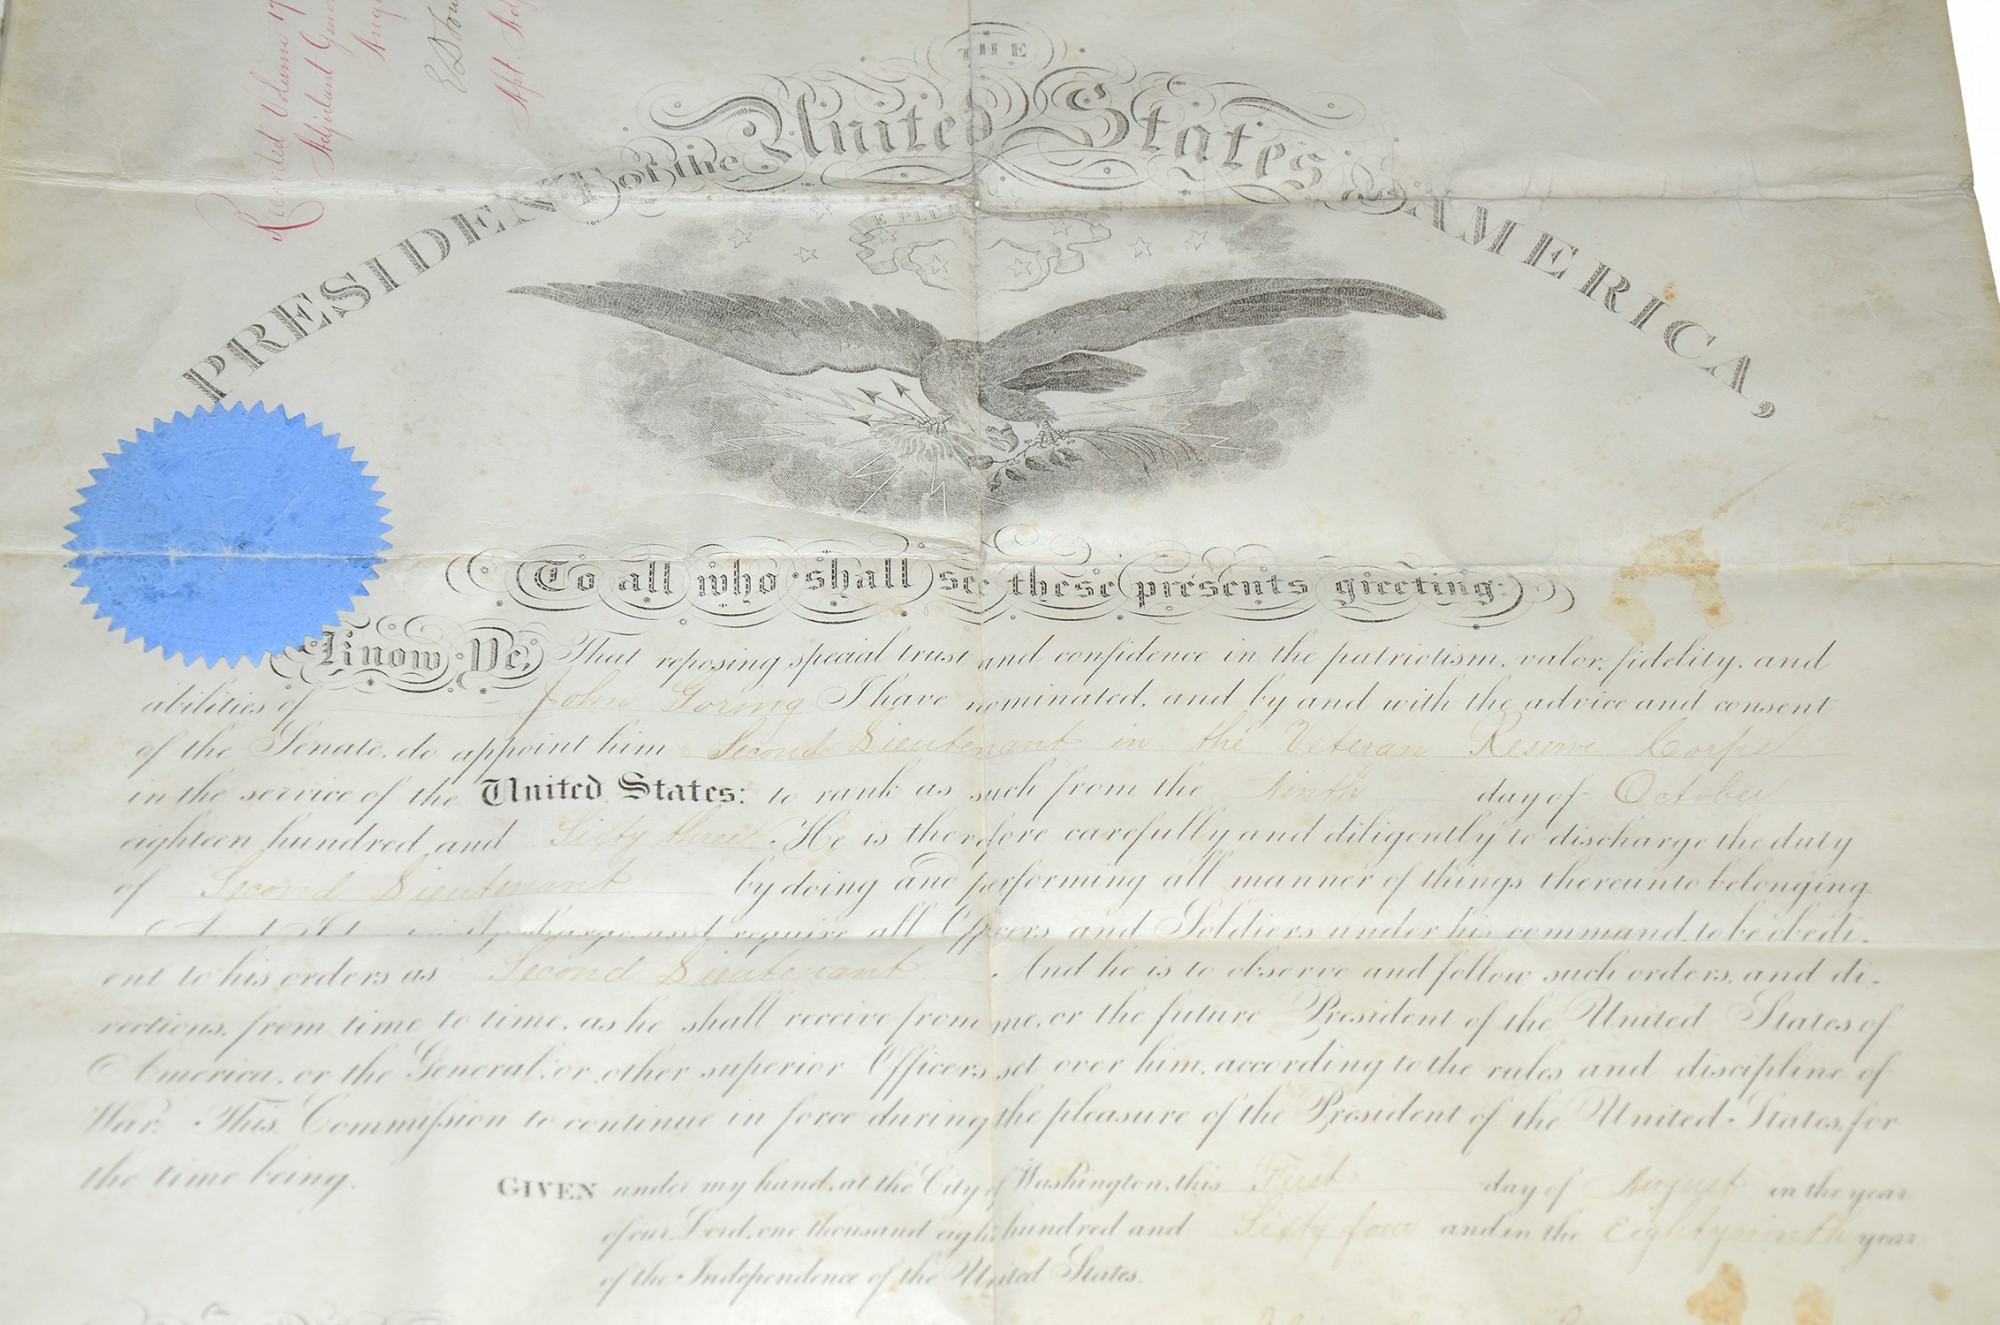 Recorded Volume
Adjutant
THE
PRESIDENT of the United States of AMERICA,
E PLU
To all who shall see these presents greeting:
Know Ye, That reposing special trust and confidence in the patriotism, valor, fidelity, and
abilities of John Goring I have nominated, and by and with the advice and consent
of the Senate, do appoint him Second Lieutenant in the Veteran Reserve Corps
in the service of the United States: to rank as such from the ninth day of October
eighteen hundred and Sixty three. He is therefore carefully and diligently to discharge the duty
of Second Lieutenant by doing and performing all manner of things thereunto belonging.
charge, and require all Officers and Soldiers under his command, to be obedi-
ent to his orders as Second Lieutenant. And he is to observe and follow such orders, and di-
rections, from time to time, as he shall receive from me, or the future President of the United States of
America, or the General, or other superior Officers set over him, according to the rules and discipline of
War. This Commission to continue in force during the pleasure of the President of the United States, for
the time being.
GIVEN under my hand, at the City of Washington, this First day of August in the year
of our Lord, one thousand eight hundred and Sixty four and in the Eightyninth year
of the Independence of the United States.